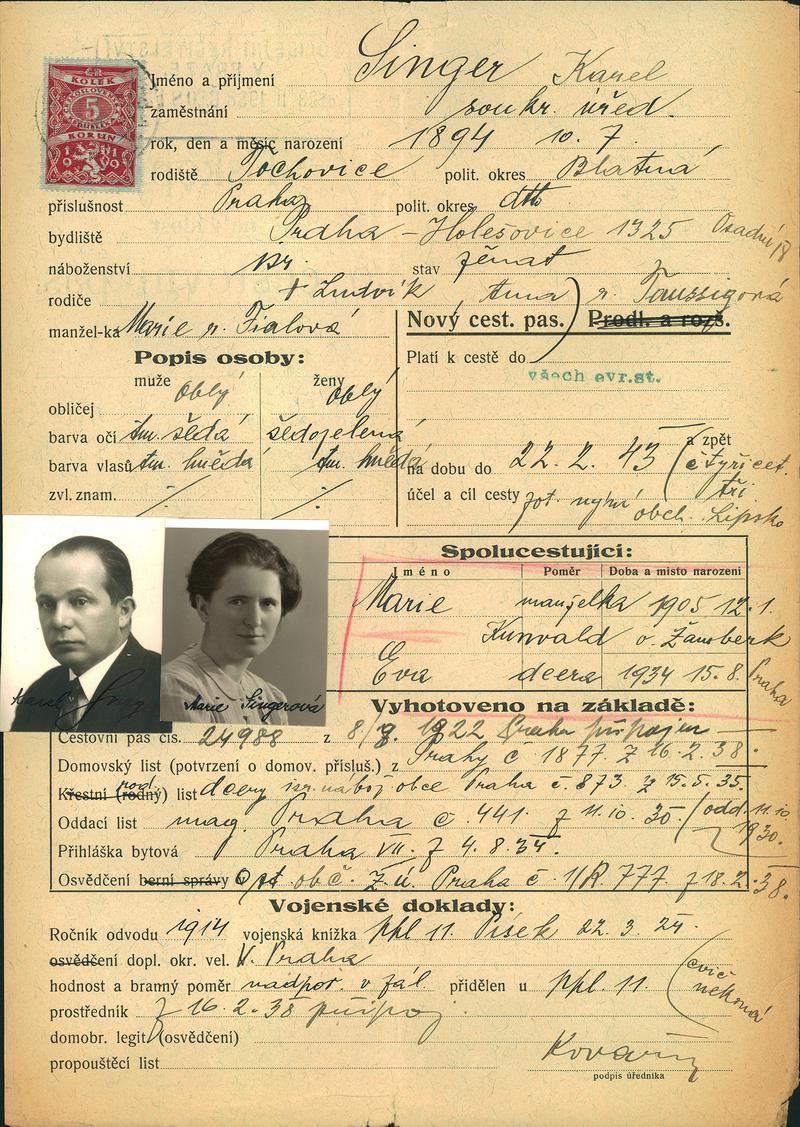 Č.S.
KOLEK
ČESKOSLOVENSKÉ
5
REPUBLIKY
KORUN
19 19
Jméno a příjmení Singer Karel
zaměstnání soukr. úřed.
rok, den a měsíc narození 1894 10. 7.
rodiště Tochovice polit. okres Blatná
příslušnost Praha polit. okres dtto
bydliště Praha - Holešovice 1325 Osadní
náboženství izr. stav ženat
rodiče + Ludvík, Anna r. Taussigová
manžel-ka Marie r. Fialová
Nový cest. pas. Prodl. a rozš.
Popis osoby:
Platí k cestě do
všech evr.st.
muže ženy
obličej oblý oblý
barva očí tm. šedá šedozelená
barva vlasů tm. hnědá tm. hnědá
zvl. znam.
a zpět
na dobu do 22. 2. 43 (čtyřicet tři
účel a cíl cesty obch. Lipsko
Spolucestující:
Jméno Poměr Doba a místo narození
Marie manželka 1905 12. 1.
Kunvald o. Žamberk
Eva dcera 1934 15. 8. Praha
Karel Marie Singerová
Vyhotoveno na základě:
Cestovní pas čís. 24988 z 1922 Praha připojen
Domovský list (potvrzení o domov. přísluš.) z Prahy č 1877 z 16. 2. 38.
Křestní (rodný) list dcery izr. nábož. obce Praha č. 873 z 15. 5. 35.
Oddací list mag. Praha č. 441. z 11. 10. 30 (odd. 11. 10. 1930.
Přihláška bytová Praha VII. z 4. 8. 34.
Osvědčení berní správy obč. z. ú. Praha č 1/R. 777 z 18. 2. 38.
Vojenské doklady:
Ročník odvodu 1914 vojenská knížka ppl 11. Písek 22. 3. 24.
osvědčení dopl. okr. vel. V. Praha
hodnost a branný poměr nadpor. v zál. přidělen u ppl. 11. (cvič nekoná
prostředník z 16. 2. 38 připoj.
domobr. legit. (osvědčení)
propouštěcí list
podpis úředníka